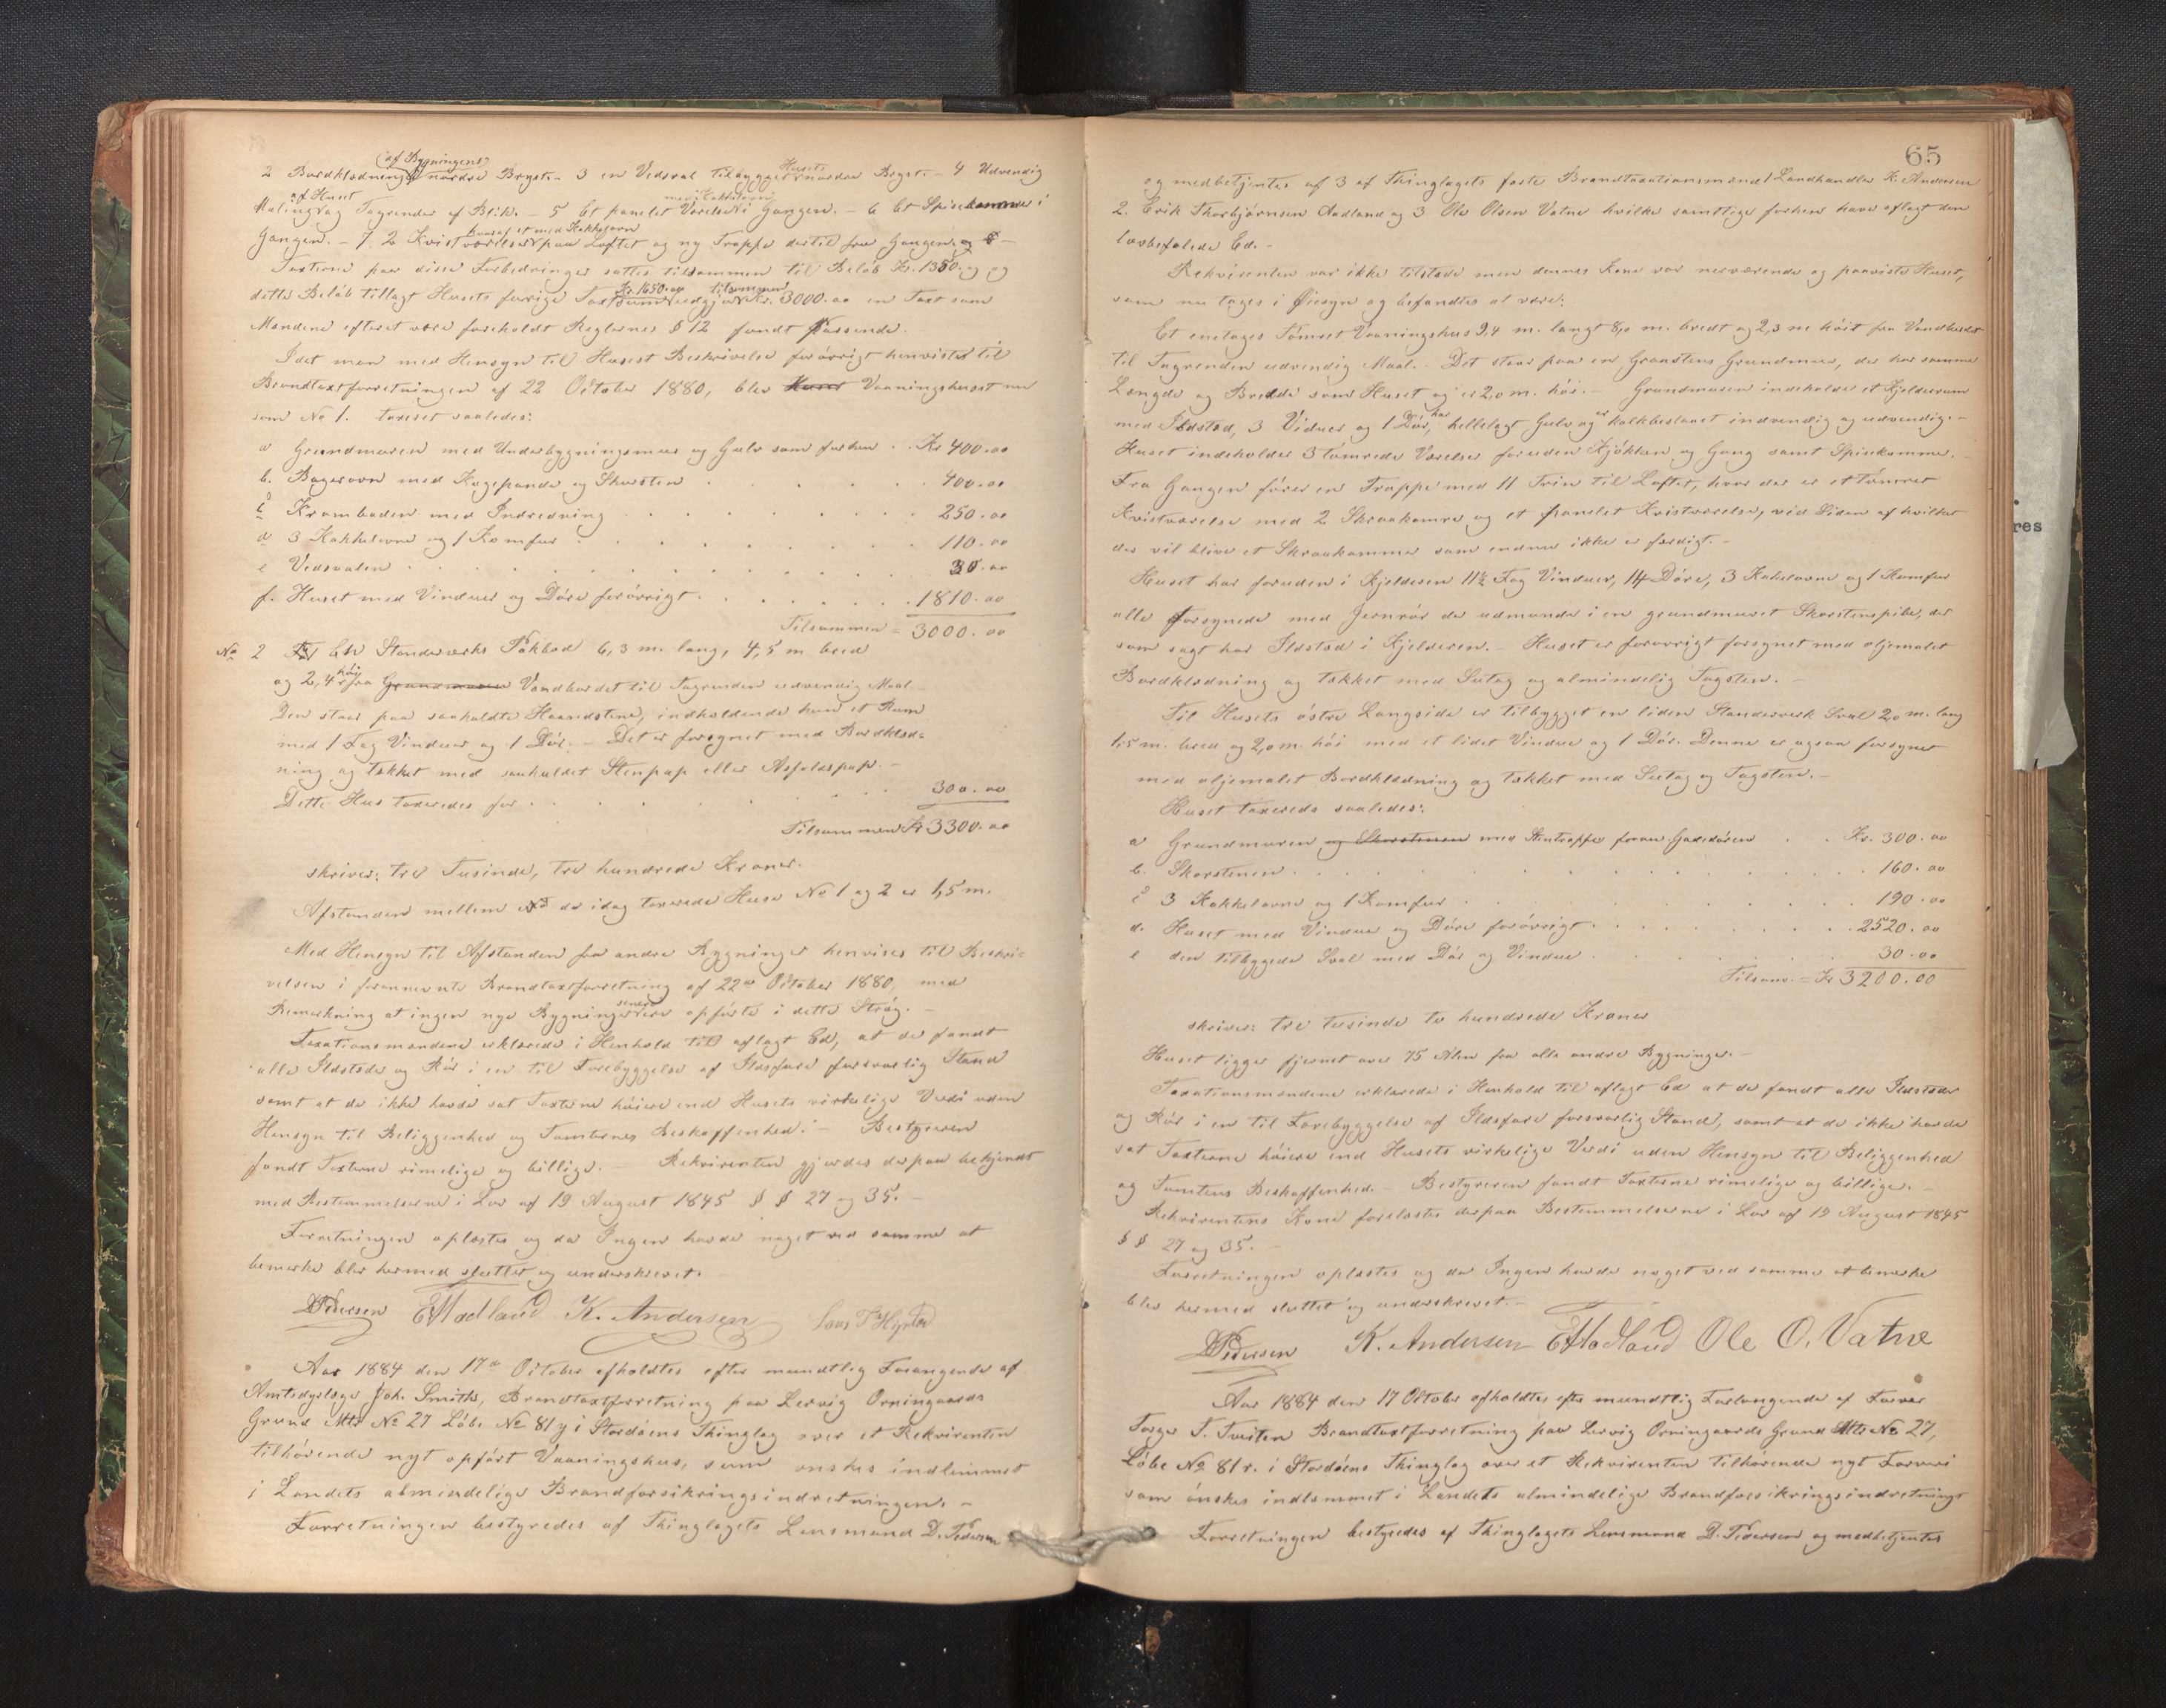 2 Bordklædning (af Bygningens) nordre Bryst. 3 en Vedsval tilbygget Husets nordre Bryst. - 4 Udvendig
Maling af Huset og Tagrender af Blik. - 5 Et panelet Værelse med Kakkelovn i Gangen. - 6 Et Spisekammer i
Gangen. - 7. 2 Kvistværelser hvoraf et med Kakkelovn paa Loftet og ny Trappe dertil fra Gangen. og
Taxterne paa disse Forbedringer sattes tilsammen til Beløb Kr. 1350. og
dette Beløb tillagt Husets forrige Taxtsum Kr. 1650.00 udgjør tilsammen Kr. 3000.00 en Taxt som
Mændene efterat være foreholdt Reglernes § 12 fandt passende.
Idet man med Hensyn til Husets Beskrivelse forøvrigt henviste til
Brandtaxtforretningen af 22 October 1880, blev Huset Vaaningshuset nu
som No 1. taxeret saaledes:
a Grundmuren med Underbygningsmur og Gulv som forhen . . Kr 400.00
b. Bagerovn med Kogepande og Skorsten . . . . 400.00
c Kramboden med Indredning . . . . 250.00
d 3 Kakkelovne og 1 Komfur . . . . 110.00
e Vedsvalen . . . . 30.00
f. Huset med Vinduer og Døre forøvrigt . . . . 1810.00
Tilsammen = 3000.00
No 2 Et Standværks Pakbod 6,3 m. lang, 4,5 m bred
og 2,4 høi fra Grundmuren Vandbordet til Tagrenden udvendig Maal. -
Den staar paa saakaldte Haandstene, indholdende kun et Rum
med 1 Fag Vinduer og 1 Dør. - Det er forsynet med Bordklæd=
ning og tækket med saakaldet Stenpap eller Asfaltpap. -
Dette Hus taxeredes for . . . . 300.00
Tilsammen Kr 3300.00
skriver: tre Tusinde, tre hundrede Kroner.
Afstanden mellem de idag taxerede Huse No 1 og 2 er 1,5 m.
Med Hensyn til Afstanden fra andre Bygninger henvises til Beskri=
velsen i forannævnte Brandtaxtforretning af 22de October 1880, med
Bemærkning at ingen nye Bygninger senere ere opførte i dette Strøg. -
Taxationsmændene erklærede i Henhold til aflagt Ed, at de fandt
alle Ildsteder og Rør i en til Forebyggelse af Ildsfare forsvarlig Stand
samt at de ikke havde sat Taxterne høiere end Husets virkelige Værdi uden
Hensyn til Beliggenhed og Tomternes Beskaffenhed. - Bestyreren
fandt Taxterne rimelige og billige. - Rekvirenten gjordes derpaa bekjendt
med Bestemmelserne i Lov af 19 August 1845 § § 27 og 35. -
Forretningen oplæstes og da Ingen havde noget ved samme at
bemærke blev hermed sluttet og underskrevet.
DPedersen EAadland K. Andersen Lars T Hystad
Aar 1884 den 17de October afholdtes efter mundtlig Forlangende af
Amtsdyrlæge Joh. Smith, Brandtaxtforretning paa Lervig Orningaards
Grund Mtr No 27 Løbe No 81y i Stordøens Thinglag over et Rekvirenten
tilhørende nyt opført Vaaningshus, som ønskes indlemmet
i Landets almindelige Brandforsikringsindretningen. -
Forretningen bestyredes af Thinglagets Lensmand D. Pedersen
65
og medbetjentes af 3 af Thinglagets faste Brandtaxationsmænd 1 Landhandler K. Andersen
2. Erik Thorbjørnsen Aadland og 3 Ole Olsen Vatne hvilke samtlige forhen have aflagt den
lovbefalede Ed. -
Rekvirenten var ikke tilstede men dennes Kone var nærværende og paaviste Huset,
som nu tages i Øiesyn og befandtes at være:
Et enetages Tømret Vaaningshus 9,4 m. langt 8,0 m. bredt og 2,3 m høit fra Vandbordet
til Tagrenden udvendig Maal. - Det staar paa en Graastens Grundmur, der har samme
Længde og Bredde som Huset og er 2,0 m. høi. - Grundmuren indeholder et Kjelderrum
med Ildsted, 3 Vinduer og 1 Dør, har hellelagt Gulv og er kalkbeslaaet indvendig og udvendig. -
Huset indeholder 3 tømrede Værelser foruden Kjøkken og Gang samt Spisekammer. -
Fra Gangen fører en Trappe med 11 Trin til Loftet, hvor der er et tømret
Kvistværelse med 2 Skraakamre og et panelet Kvistværelse, ved Siden af hvilket
der vil blive et Skraakammer som endnu ikke er færdigt. -
Huset har foruden i Kjelderen 11½ Fag Vinduer, 14 Døre, 3 Kakelovne og 1 Komfur
alle forsynede med Jernrør der udmunde i en grundmuret Skorstenspibe, der
som sagt har Ildsted i Kjelderen. - Huset er forøvrigt forsynet med oljemalet
Bordklædning og tækket med Sutag og almindelig Tagsten. -
Til Husets østre Langside er tilbygget en liden Standerværk Sval 2,0 m. lang
1,5 m. bred og 2,0 m. høi med et lidet Vindue og 1 Dør. Denne er ogsaa forsynet
med oljemalet Bordklædning og tækket med Sutag og Tagsten. -
Huset taxeredes saaledes:
a Grundmuren og Skorstenen med Stentrappe foran Gadedøren . . Kr. 300.00
b. Skorstenen . . . . 160.00
c 3 Kakkelovne og 1 Komfur . . . . 190.00
d. Huset med Vinduer og Døre forøvrigt . . . . 2520.00
e den tilbyggede Sval med Dør og Vindue . . . . 30.00
Tilsam. = Kr 3200.00
skriver: tre tusinde to hundrede Kroner
Huset ligger fjernet over 75 Alen fra alle andre Bygninger. -
Taxationsmændene erklærede i Henhold til aflagt Ed at de fandt alle Ildsteder
og Rør i en til Forebyggelse af Ildsfare forsvarlig Stand, samt at de ikke havde
sat Taxterne høiere end Husets virkelige Værdi uden Hensyn til Beliggenhed
og Tomtens Beskaffenhed. - Bestyreren fandt Taxterne rimelige og billige. -
Rekvirentens Kone forelæstes derpaa Bestemmelserne i Lov af 19 August 1845
§ § 27 og 35. -
Forretningen oplæstes og da Ingen havde noget ved samme at bemærke
blev hermed sluttet og underskrevet. -
DPedersen K. Andersen EAadland Ole O. Vatne
Aar 1884 den 17 Oktober afholdtes efter mundtlig Forlangende af Farver
Torger T. Tveiten Brandtaxtforretning paa Lervig Orningaards Grund Mtr No 27,
Løbe No 81r. i Stordøens Thinglag over et Rekvirenten tilhørende nyt Farveri
som ønskes indlemmet i Landets almindelige Brandforsikringsindretning
Forretningen bestyredes af Thinglagets Lensmand D. Pedersen og medbetjentes
res